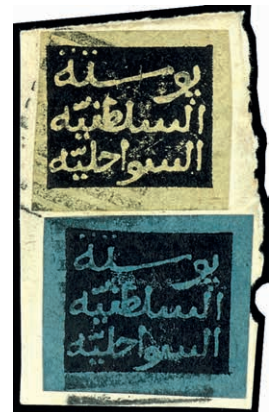 بوستة
السلطنيّه
السواحليّه
بوستة
السلطنيّه
السواحليّه